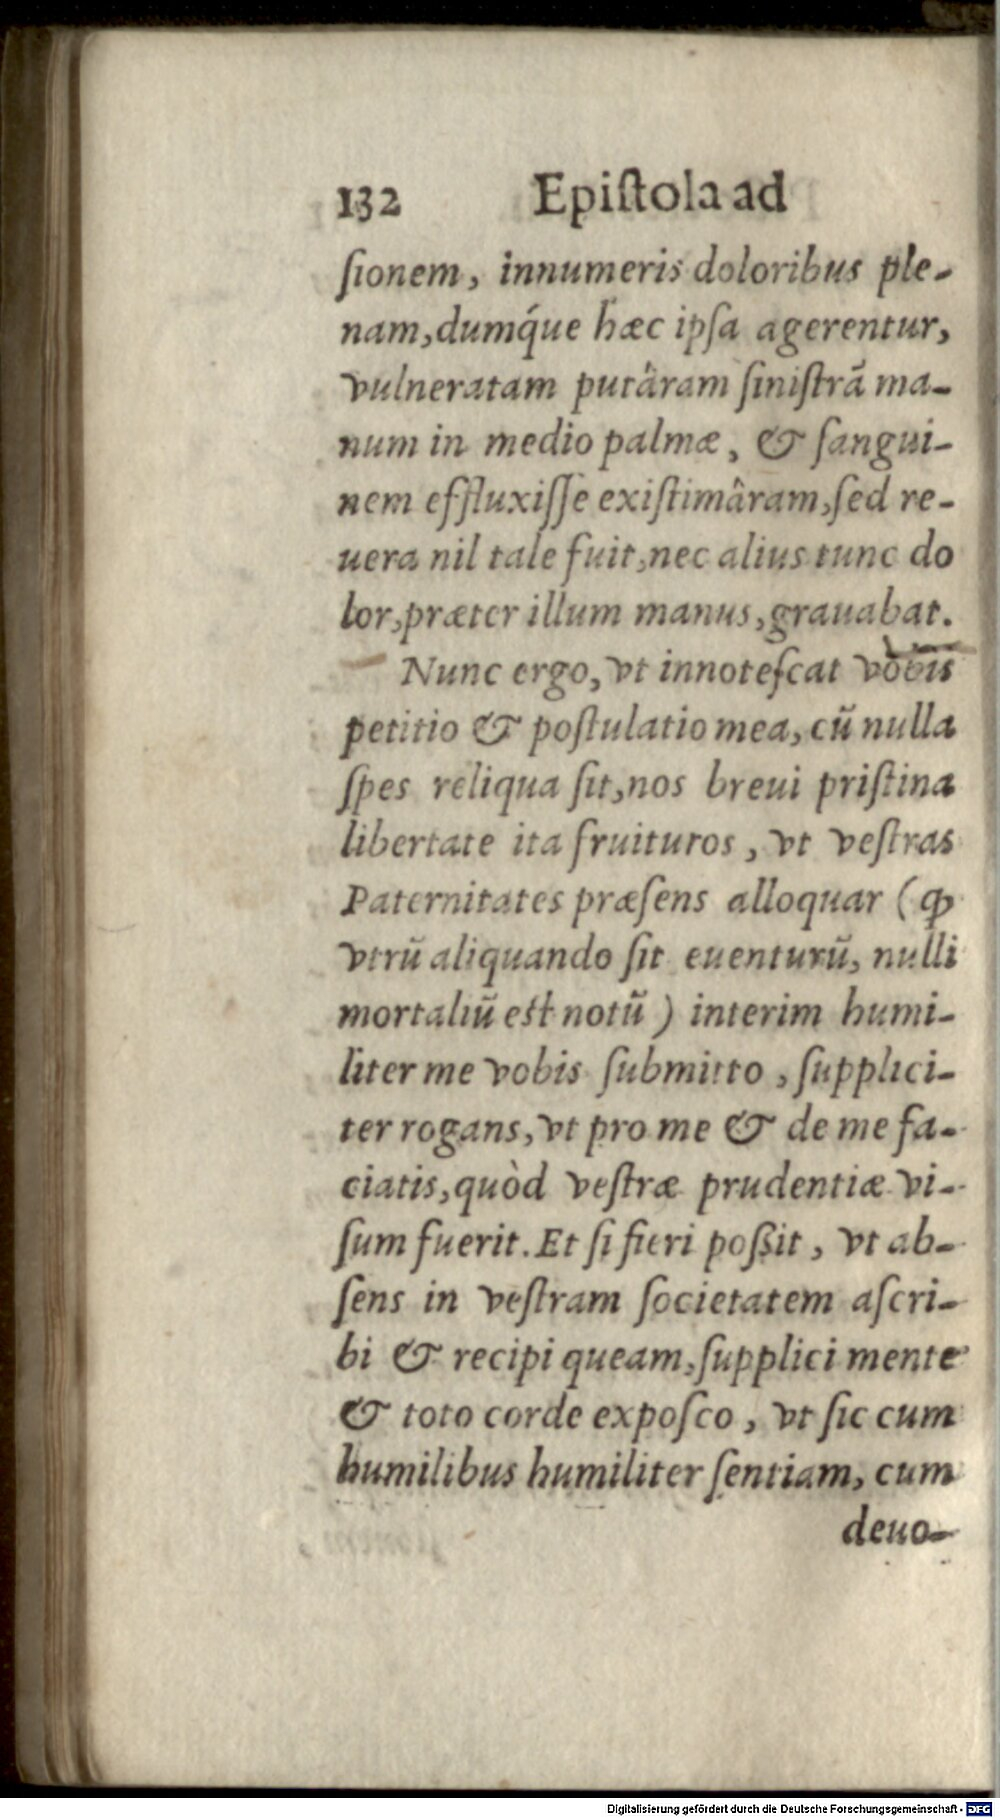 132 Epiſtola ad
ſionem, innumeris doloribus ple-
nam, dumq́ue hæc ipſa agerentur,
vulneratam putâram ſiniſtrã ma-
num in medio palmæ, & ſangui-
nem effluxiſſe exiſtimâram, ſed re-
uera nil tale fuit, nec alius tunc do
lor, præter illum manus, grauabat.
Nunc ergo, vt innoteſcat vobis
petitio & poſtulatio mea, cũ nulla
ſpes reliqua ſit, nos breui priſtina
libertate ita fruituros, vt veſtras
Paternitates præſens alloquar (ꝙ
vtrũ aliquando ſit euenturũ, nulli
mortaliũ eſt notũ) interim humi-
liter me vobis ſubmitto, ſupplici-
ter rogans, vt pro me & de me fa-
ciatis, quòd veſtræ prudentiæ vi-
ſum fuerit. Et ſi fieri poßit, vt ab-
ſens in veſtram ſocietatem aſcri-
bi & recipi queam, ſupplici mente
& toto corde expoſco, vt ſic cum
humilibus humiliter ſentiam, cum
deuo-
Digitalisierung gefördert durch die Deutsche Forschungsgemeinschaft - DFG